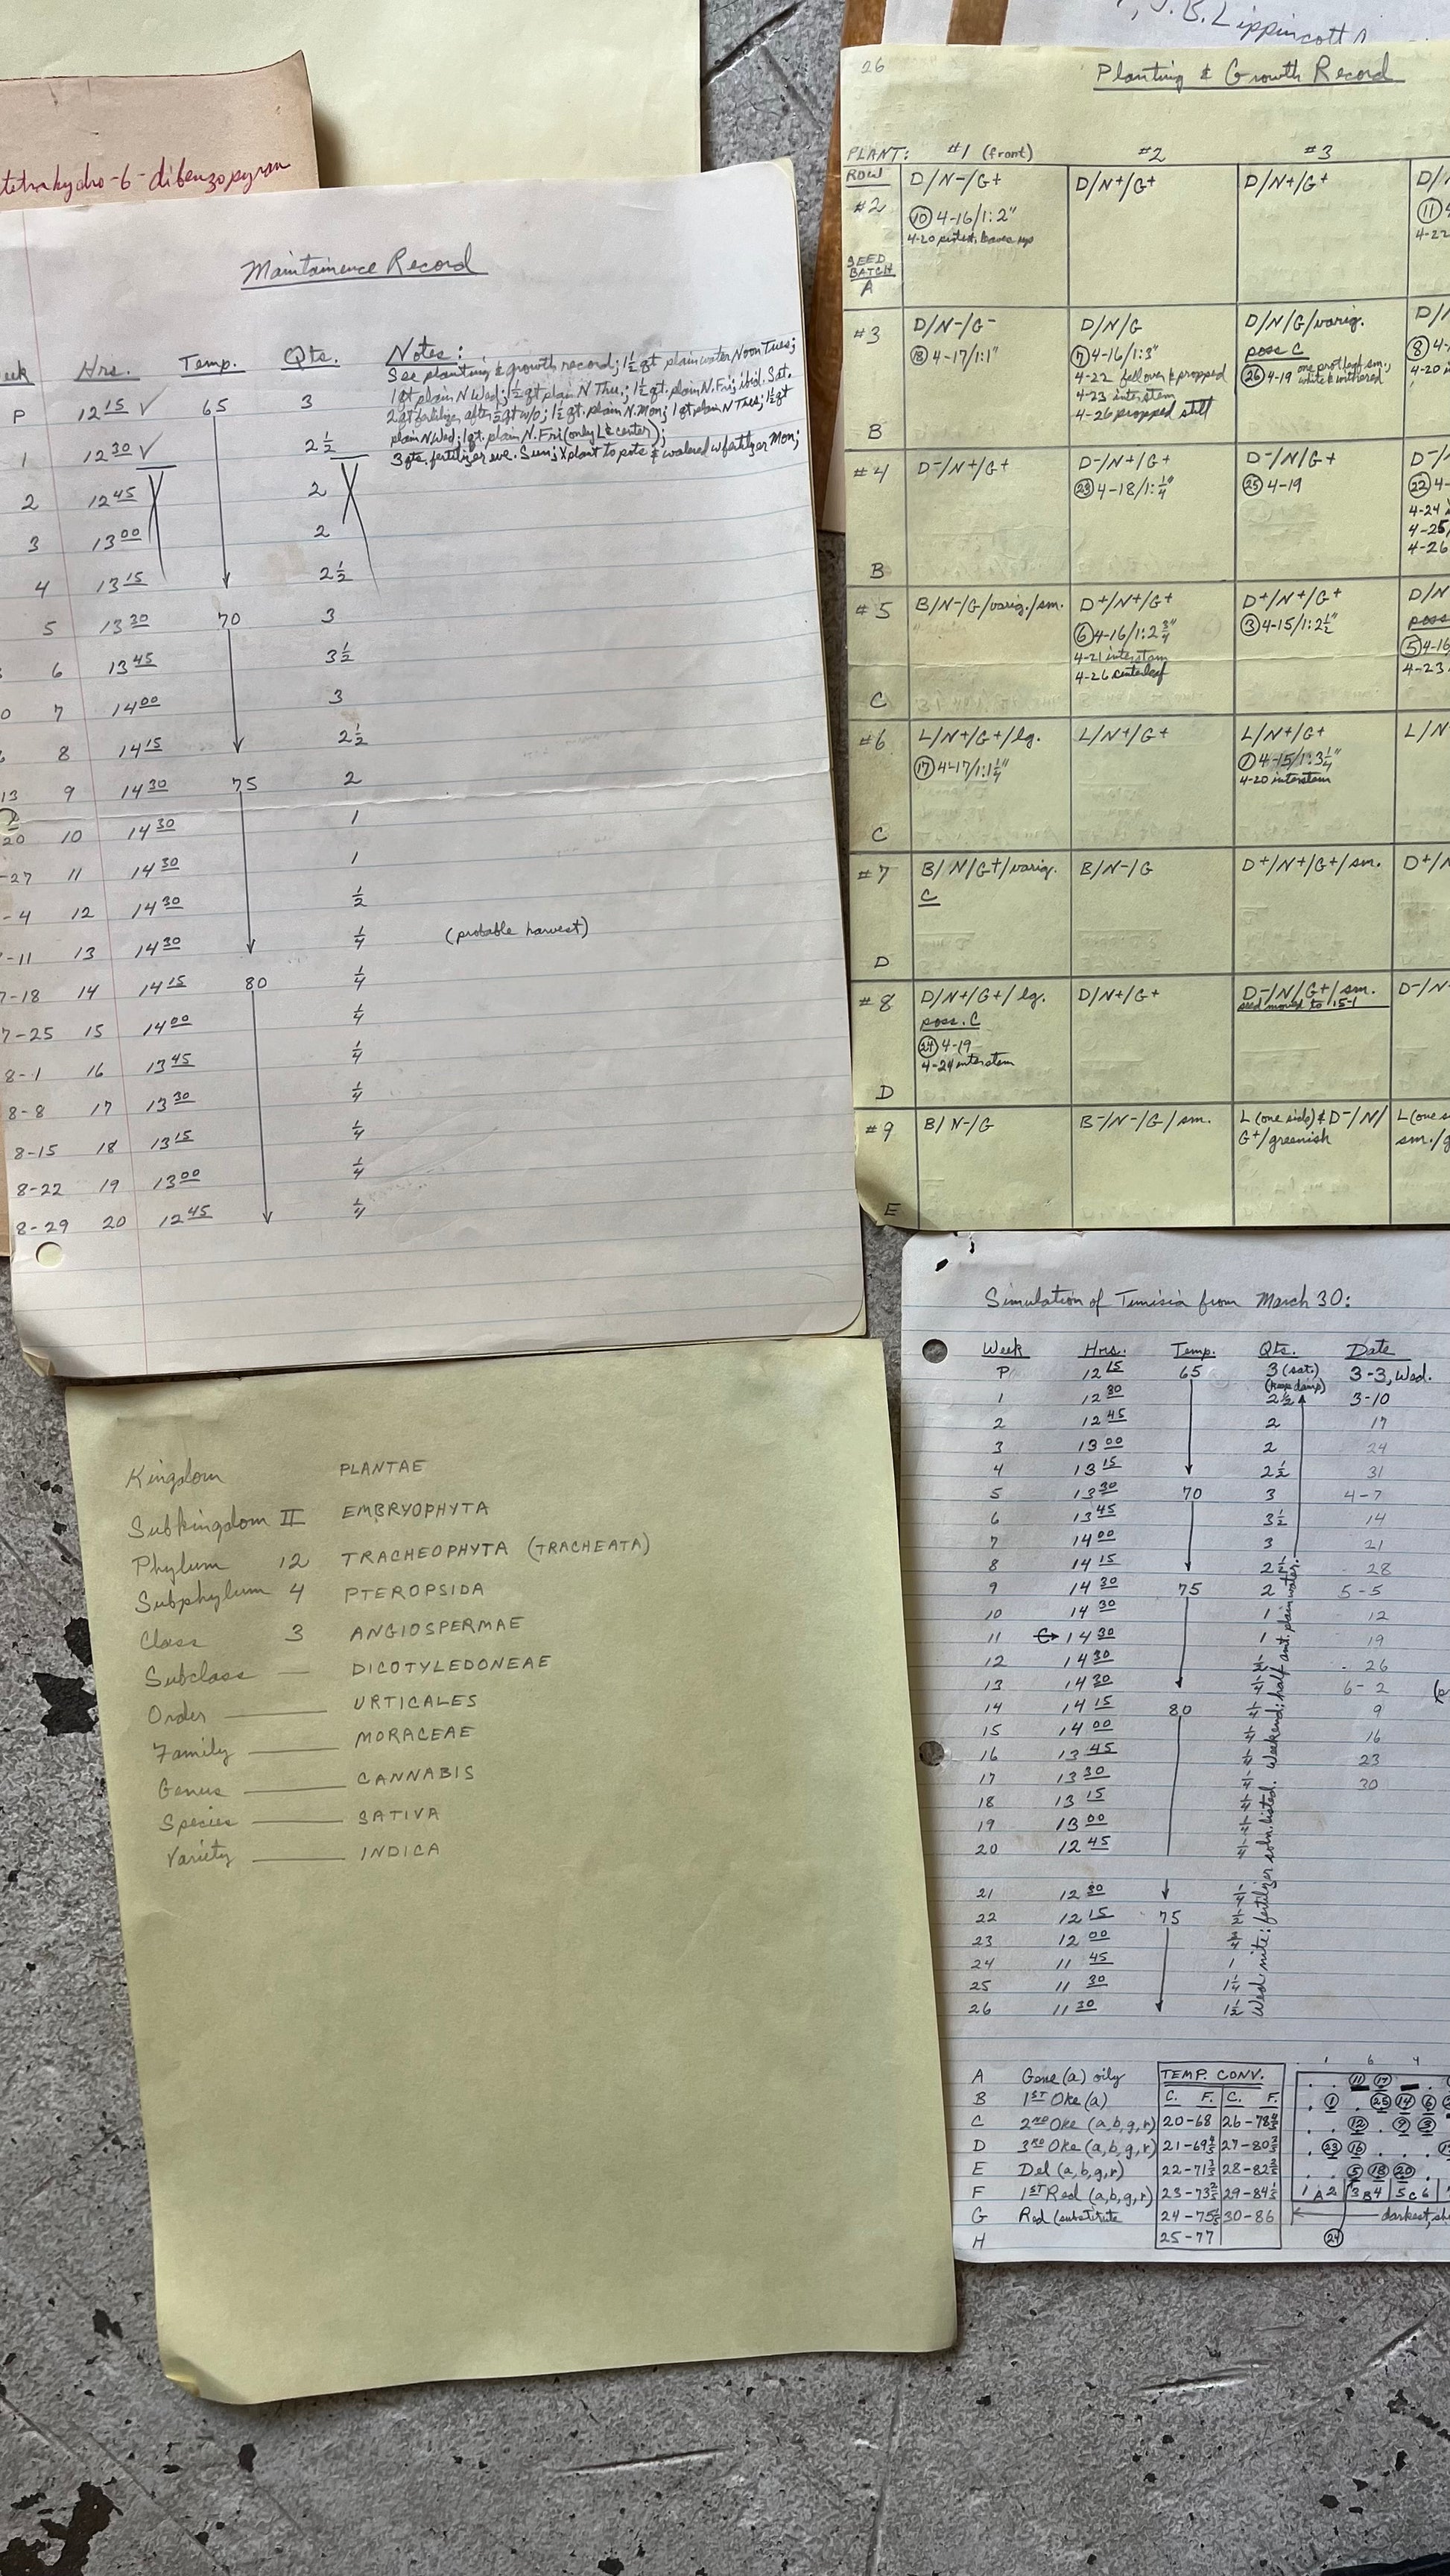 J.B. Lippincott
tetrahydro-6-dibenzopyran
Maintainence Record
Hrs. Temp. Qts. Notes:
See planting & growth record; 1½ qt plain water Noon Tues;
1 qt plain N Wed; 1½ qt plain N Thu.; 1½ qt. plain N. Fri; ibid. Sat.
2 qt fertilizer after ½ qt w/p; 1½ qt. plain N. Mon; 1 qt plain N Tues; 1½ qt
plain N Wed; 1 qt. plain N. Fri (only L & center);
3 qts. fertilizer eve. Sun; Xplant to pots & watered w fertilizer Mon;
P 12 15 ✓ 65 3
1 12 30 ✓ 2½
2 12 45 2
3 13 00 2
4 13 15 2½
5 13 30 70 3
6 13 45 3½
7 14 00 3
8 14 15 2½
13 9 14 30 75 2
20 10 14 30 1
-27 11 14 30 1
-4 12 14 30 ½
-11 13 14 30 ¼ (probable harvest)
7-18 14 14 15 80 ¼
7-25 15 14 00 ¼
8-1 16 13 45 ¼
8-8 17 13 30 ¼
8-15 18 13 15 ¼
8-22 19 13 00 ¼
8-29 20 12 45 ¼
26
Planting & Growth Record
PLANT: #1 (front) #2 #3
ROW
#2
SEED
BATCH
A
D/N-/G+
10 4-16/1:2"
4-20 leaves up
D/N+/G+
D/N+/G+
11
4-22
#3
B
D/N-/G-
18 4-17/1:1"
D/N/G
7 4-16/1:3"
4-22 fell over & propped
4-23 interstem
4-26 propped still
D/N/G/varig.
poss C
26 4-19 one prot. leaf sm.,
white & withered
8 4-
4-20
#4
B
D-/N+/G+
D-/N+/G+
23 4-18/1:1¼"
D-/N/G+
25 4-19
D-/
22 4-
4-24
4-25/
4-26
#5
C
B/N-/G/varig./sm.
D+/N+/G+
6 4-16/1:2¾"
4-21 interstem
4-26 centerleaf
D+/N+/G+
3 4-15/1:2½"
D/N
poss
5 4-16
4-23
#6
C
L/N+/G+/lg.
17 4-17/1:1¼"
L/N+/G+
L/N+/G+
1 4-15/1:3¼"
4-20 interstem
L/N
#7
D
B/N/G+/varig.
C
B/N-/G
D+/N+/G+/sm.
D+/
#8
D
D/N+/G+/lg.
poss. C
24 4-19
4-24 interstem
D/N+/G+
D-/N/G+/sm.
seed moved to 15-1
D-/N
#9
E
B/N-/G
B-/N-/G/sm.
L (one side) & D-/N/
G+/greenish
L (one s
sm./g
Kingdom PLANTAE
Subkingdom II EMBRYOPHYTA
Phylum 12 TRACHEOPHYTA (TRACHEATA)
Subphylum 4 PTEROPSIDA
Class 3 ANGIOSPERMAE
Subclass — DICOTYLEDONEAE
Order — URTICALES
Family — MORACEAE
Genus — CANNABIS
Species — SATIVA
Variety — INDICA
Simulation of Tunisia from March 30:
Week Hrs. Temp. Qts. Date
P 12 15 65 3 (sat.) 3-3, Wed.
(keep damp)
1 12 30 2½ 3-10
2 12 45 2 17
3 13 00 2 24
4 13 15 2½ 31
5 13 30 70 3 4-7
6 13 45 3½ 14
7 14 00 3 21
8 14 15 2½ 28
9 14 30 75 2 5-5
10 14 30 1 12
11 14 30 1 19
12 14 30 ½ 26
13 14 30 ¼ 6-2
14 14 15 80 ¼ 9
15 14 00 ¼ 16
16 13 45 ¼ 23
17 13 30 ¼ 30
18 13 15 ¼
19 13 00 ¼
20 12 45 ¼
21 12 30 ¼
22 12 15 75 ½
23 12 00 ¾
24 11 45 1
25 11 30 1¼
26 11 30 1½
Wed nite: fertilizer soln. listed. Weekend: half amt. plain water.
A Gene (a) oily
B 1ST Oke (a)
C 2ND Oke (a, b, g, r)
D 3RD Oke (a, b, g, r)
E Del (a, b, g, r)
F 1ST Red (a, b, g, r)
G Red (substitute
H
TEMP. CONV.
C. F. C. F.
20-68 26-78⅘
21-69⅘ 27-80⅗
22-71⅗ 28-82⅖
23-73⅖ 29-84⅕
24-75⅕ 30-86
25-77
1 6 4
11 17
1 25 14 6
12 9 3
23 16
5 18 20
1 A 2 3 B 4 5 C 6
darkest,
24